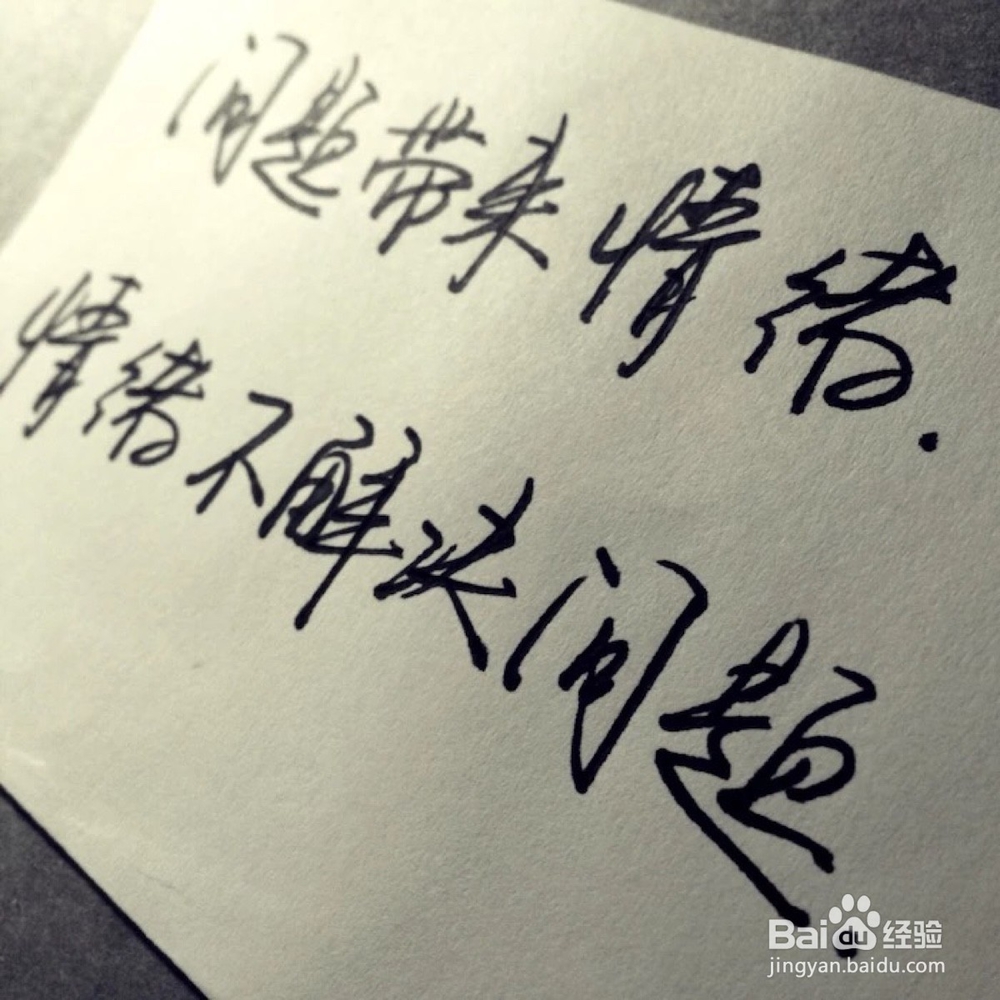 问题带来情绪.
情绪不解决问题.
Baidu 经验
jingyan.baidu.com